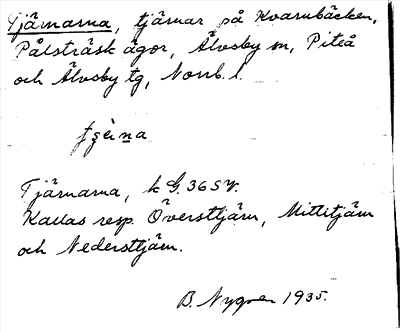 Tjärnarna, tjärnar på Kvarnbäcken,
Pålsträsk ägor, Älvsby sn, Piteå
och Älvsby tg, Norrb. l.
Tjärnarna, k G. 36 SV.
Kallas resp. Översttjärn, Mittitjärn
och Nedersttjärn.
B. Nygren 1935.